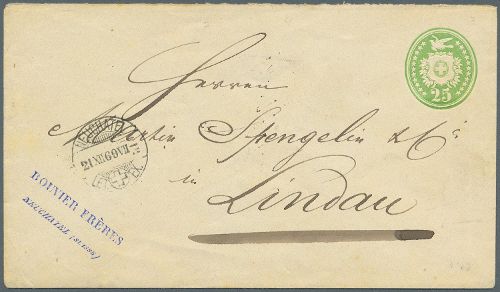 Herren
Martin Spengelin & Co
in
Lindau
25
NEUCHATEL
BOUVIER FRÈRES
NEUCHATEL (SUISSE)